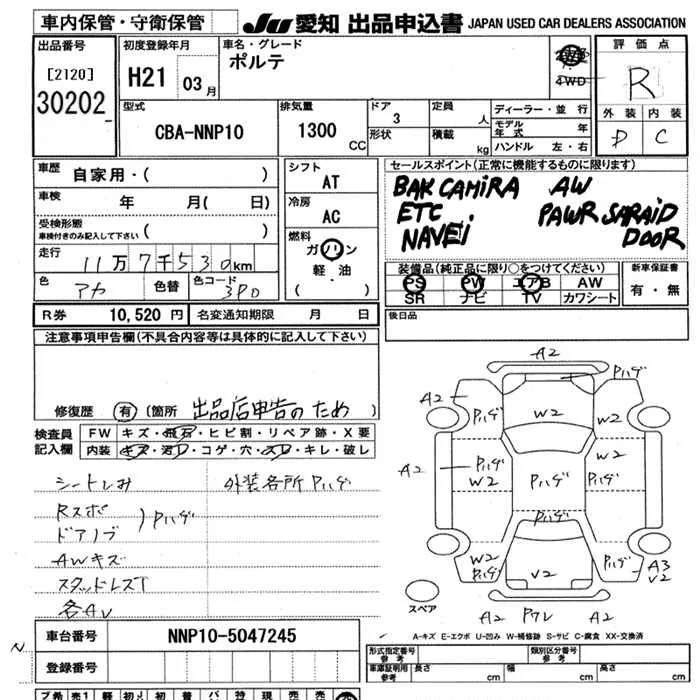 車内保管・守衛保管
JU 愛知 出品申込書 JAPAN USED CAR DEALERS ASSOCIATION
出品番号
[2120]
30202
初度登録年月
H21 03 月
車名・グレード
ポルテ
4WD
評価点
R
外装 内装
D C
型式
CBA-NNP10
排気量
1300 CC
ドア
3
形状
定員
人
積載
kg
ディーラー・並行
モデル年式 年
ハンドル 左・右
車歴
自家用・( )
車検
年 月( 日)
受検形態
車検付きのみ記入して下さい ( )
走行
11万7千530km
色
アカ
色替
色コード
3P0
シフト
AT
冷房
AC
燃料
ガソリン
軽・油
( )
セールスポイント(正常に機能するものに限ります)
BAK CAMIRA AW
ETC PAWR SARAID
NAVEi DOOR
装備品(純正品に限り○をつけてください)
PS PW エアB AW
SR ナビ TV カワシート
新車保証書
有・無
R券 10,520 円 名変通知期限 月 日
後日品
注意事項申告欄(不具合内容等は具体的に記入して下さい)
修復歴 有 (箇所 出品店申告のため )
検査員記入欄
FW キズ・飛石・ヒビ割・リペア跡・X要
内装 キズ・汚レ・コゲ・穴・スレ・キレ・破レ
シートしみ 外装各所Pハゲ
Rスポ
ドアノブ )Pハゲ
AWキズ
スタッドレスT
各AV
A2
Pハゲ
A2
Pハゲ
W2
Pハゲ
W2
A2
Pハゲ
W2
Pハゲ
Pハゲ
W2
Pハゲ
W2
Pハゲ
V2
Pハゲ
A3
V2
スペア
A2 Pワレ A2
A-キズ E-エクボ U-凹み W-補修跡 S-サビ C-腐食 XX-交換済
N
車台番号 NNP10-5047245
登録番号
形式指定番号
参考
類別区分番号
参考
車庫証明用
参考
長さ cm 幅 cm 高さ cm